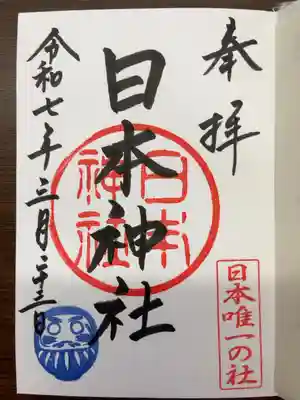 奉拝
日本神社
日本神社
令和七年三月二十三日
日本唯一の社